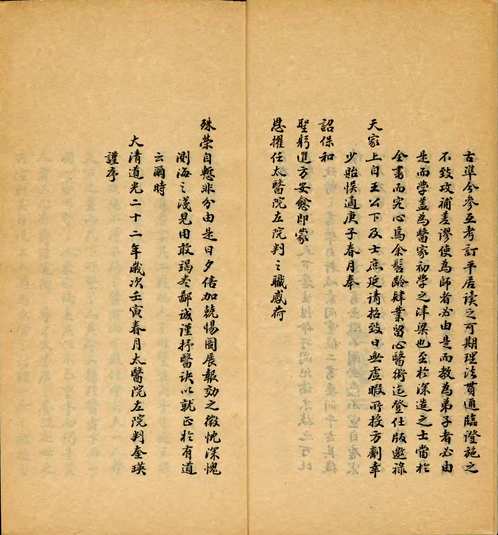 古準今參互考訂平居讀之可期理法貫通臨證施之
不致攻補差謬使為師者必由是而教為弟子者必由
是而學蓋為醫家初學之津梁也至於深造之士當於
全書而究心焉余髫齡肄業留心醫術迨登仕版邀祿
天家上自王公下及士庶延請招致日無虛暇所投方劑幸
少貽悞適庚子春月奉
詔保和
聖躬進方安愈即蒙
恩擢任太醫院左院判之職感荷
殊榮自慙非分由是日夕倍加兢惕圖展報効之微忱深愧
測海之淺見用敢竭奏鄙誠謹抒醫訣以就正於有道
云爾時
大清道光二十二年歲次壬寅春月太醫院左院判奎瑛
謹序